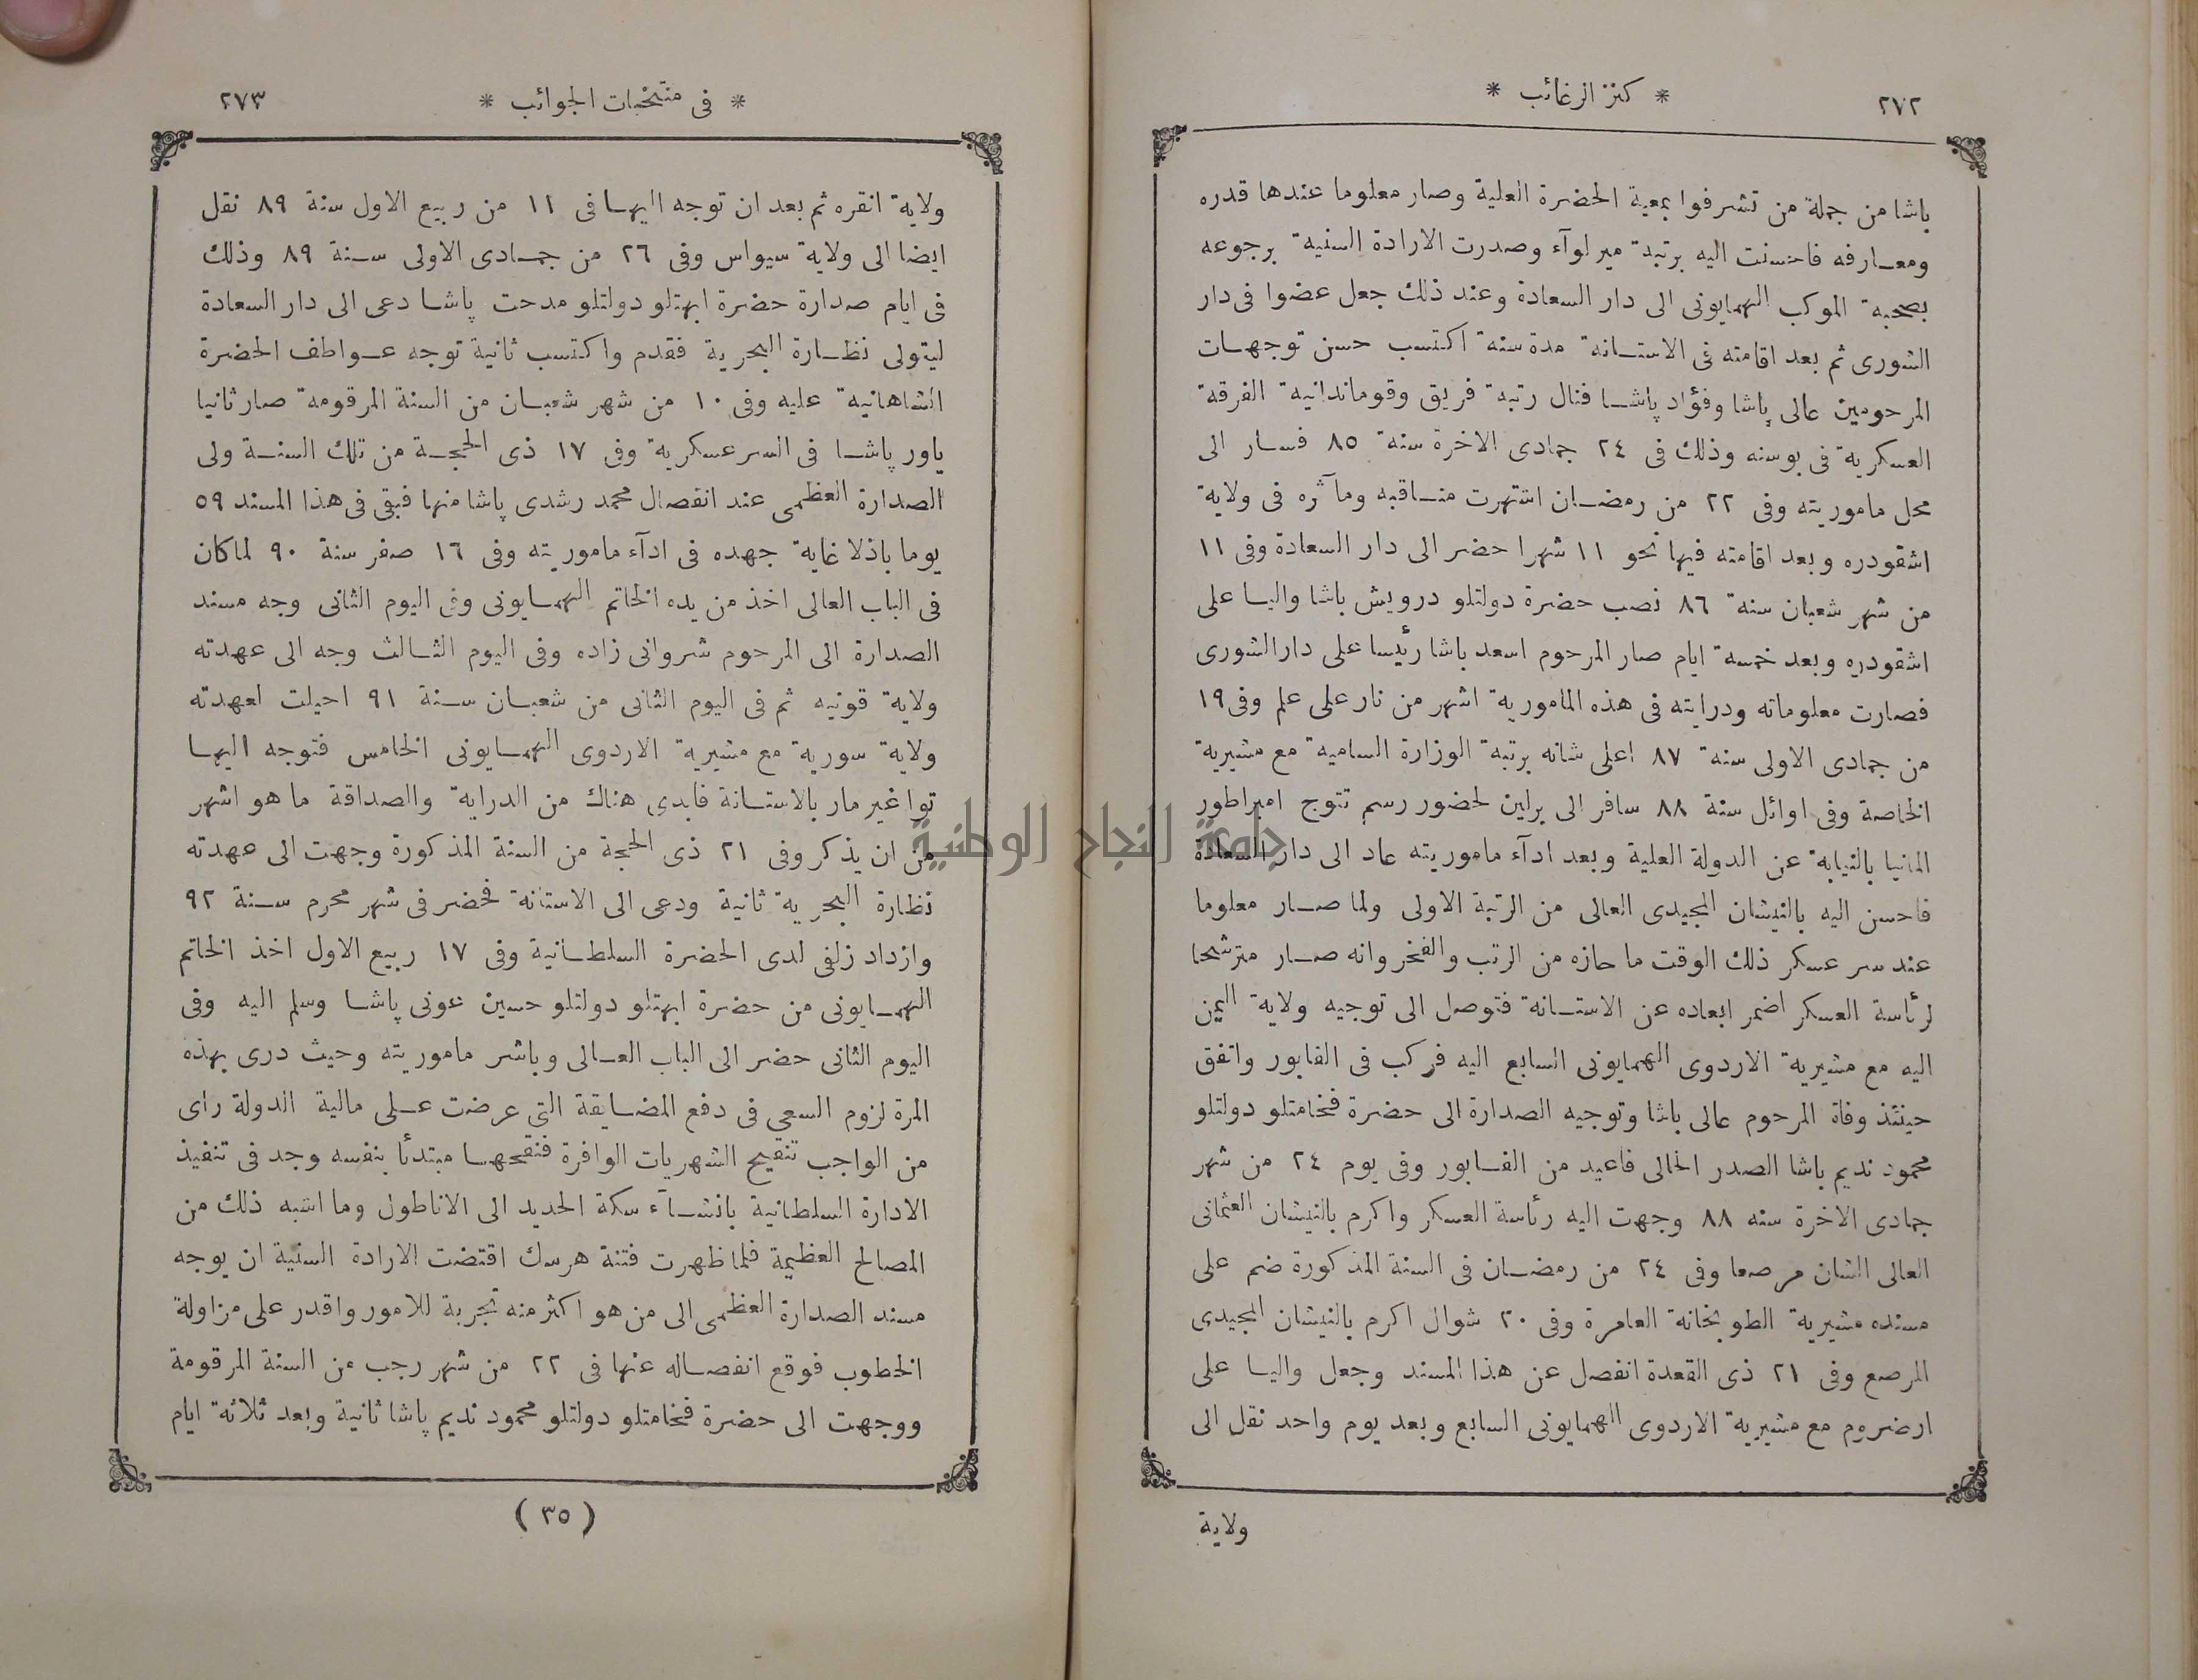 ٢٧٢
* كنز الرغائب *
باشا من جملة من تشرفوا بمعية الحضرة العلية وصار معلوما عندها قدره
ومعارفه فاحسنت اليه برتبة ميرلوآء وصدرت الارادة السنية برجوعه
بصحبة الموكب الهمايونى الى دار السعادة وعند ذلك جعل عضوا فى دار
الشورى ثم بعد اقامته فى الاستانة مدة سنة اكتسب حسن توجهات
المرحومين عالى پاشا وفؤاد پاشا فنال رتبة فريق وقومماندانية الفرقة
العسكرية فى بوسنه وذلك فى ٢٤ جمادى الاخرة سنة ٨٥ فسار الى
محل ماموريته وفى ٢٢ من رمضان اشتهرت مناقبه ومآثره فى ولاية
اشقودره وبعد اقامته فيها نحو ١١ شهرا حضر الى دار السعادة وفى ١١
من شهر شعبان سنة ٨٦ نصب حضرة دولتلو درويش باشا واليا على
اشقودره وبعد خمسة ايام صار المرحوم اسعد باشا رئيسا على دار الشورى
فصارت معلوماته ودرايته فى هذه المامورية اشهر من نار على علم وفى ١٩
من جمادى الاولى سنة ٨٧ اعلى شانه برتبة الوزارة السامية مع مشيرية
الخاصة وفى اوائل سنة ٨٨ سافر الى برلين لحضور رسم تتوج امبراطور
المانيا بالنيابة عن الدولة العلية وبعد ادآء ماموريته عاد الى دار السعادة
فاحسن اليه بالنيشان المجيدى العالى من الرتبة الاولى ولما صار معلوما
عند سر عسكر ذلك الوقت ما حازه من الرتب والفخر وانه صار مترشحا
لرئاسة العسكر اضمر ابعاده عن الاستانة فتوصل الى توجيه ولاية اليمن
اليه مع مشيرية الاردوى الهمايونى السابع اليه فركب فى الفابور واتفق
حينئذ وفاة المرحوم عالى باشا وتوجيه الصدارة الى حضرة فخامتلو دولتلو
محمود نديم باشا الصدر الحالى فاعيد من الفابور وفى يوم ٢٤ من شهر
جمادى الاخرة سنه ٨٨ وجهت اليه رئاسة العسكر واكرم بالنيشان العثمانى
العالى الشان مرصعا وفى ٢٤ من رمضان فى السنة المذكورة ضم على
مسنده مشيرية الطوبخانة العامرة وفى ٢٠ شوال اكرم بالنيشان المجيدى
المرصع وفى ٢١ ذى القعدة انفصل عن هذا المسند وجعل واليا على
ارضروم مع مشيرية الاردوى الهمايونى السابع وبعد يوم واحد نقل الى
ولاية
* فى منتخبات الجوائب *
٢٧٣
ولاية انقره ثم بعد ان توجه اليها فى ١١ من ربيع الاول سنة ٨٩ نقل
ايضا الى ولاية سيواس وفى ٢٦ من جمادى الاولى سنة ٨٩ وذلك
فى ايام صدارة حضرة ابهتلو دولتلو مدحت پاشا دعى الى دار السعادة
ليتولى نظارة البحرية فقدم واكتسب ثانية توجه عواطف الحضرة
الشاهانية عليه وفى ١٠ من شهر شعبان من السنة المرقومة صار ثانيا
ياور پاشا فى السرعسكرية وفى ١٧ ذى الحجة من تلك السنة ولى
الصدارة العظمى عند انفصال محمد رشدى پاشا منها فبقى فى هذا المسند ٥٩
يوما باذلا غاية جهده فى ادآء ماموريته وفى ١٦ صفر سنة ٩٠ لما كان
فى الباب العالى اخذ من يده الخاتم الهمايونى وفى اليوم الثانى وجه مسند
الصدارة الى المرحوم شروانى زاده وفى اليوم الثالث وجه الى عهدته
ولاية قونيه ثم فى اليوم الثانى من شعبان سنة ٩١ احيلت لعهدته
ولاية سورية مع مشيرية الاردوى الهمايونى الخامس فتوجه اليها
توا غير مار بالاستانة فابدى هناك من الدراية والصداقة ما هو اشهر
من ان يذكر وفى ٢١ ذى الحجة من السنة المذكورة وجهت الى عهدته
نظارة البحرية ثانية ودعى الى الاستانة فحضر فى شهر محرم سنة ٩٢
وازداد زلفى لدى الحضرة السلطانية وفى ١٧ ربيع الاول اخذ الخاتم
الهمايونى من حضرة ابهتلو دولتلو حسين عونى پاشا وسلم اليه وفى
اليوم الثانى حضر الى الباب العالى وباشر ماموريته وحيث درى بهذه
المرة لزوم السعى فى دفع المضايقة التى عرضت على مالية الدولة راى
من الواجب تنقيح الشهريات الوافرة فنقحها مبتدئا بنفسه وجد فى تنفيذ
الادارة السلطانية بانشاء سكة الحديد الى الاناطول وما اشبه ذلك من
المصالح العظيمة فلما ظهرت فتنة هرسك اقتضت الارادة السنية ان يوجه
مسند الصدارة العظمى الى من هو اكثر منه تجربة للامور واقدر على مزاولة
الخطوب فوقع انفصاله عنها فى ٢٢ من شهر رجب من السنة المرقومة
ووجهت الى حضرة فخامتلو دولتلو محمود نديم پاشا ثانية وبعد ثلاثة ايام
( ٣٥ )
جامعة النجاح الوطنية